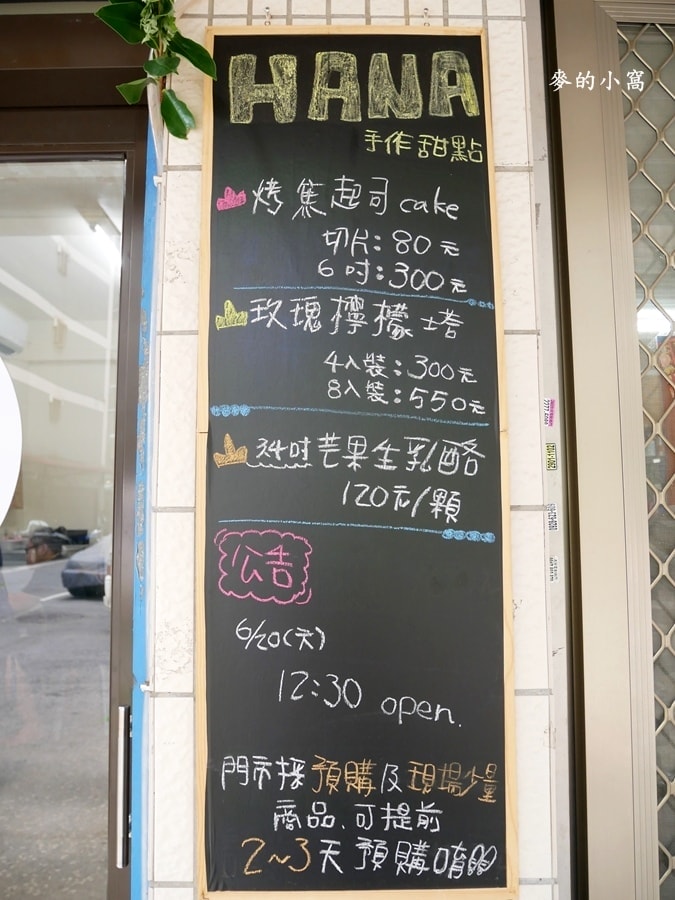 麥的小窩
HANA
手作甜點
烤焦起司 cake
切片:80元
6吋:300元
玫瑰檸檬塔
4入裝:300元
8入裝:550元
34吋芒果生乳酪
120元/顆
公告
6/20(天)
12:30 open.
門市採預購及現場少量
商品、可提前
2~3天預購唷